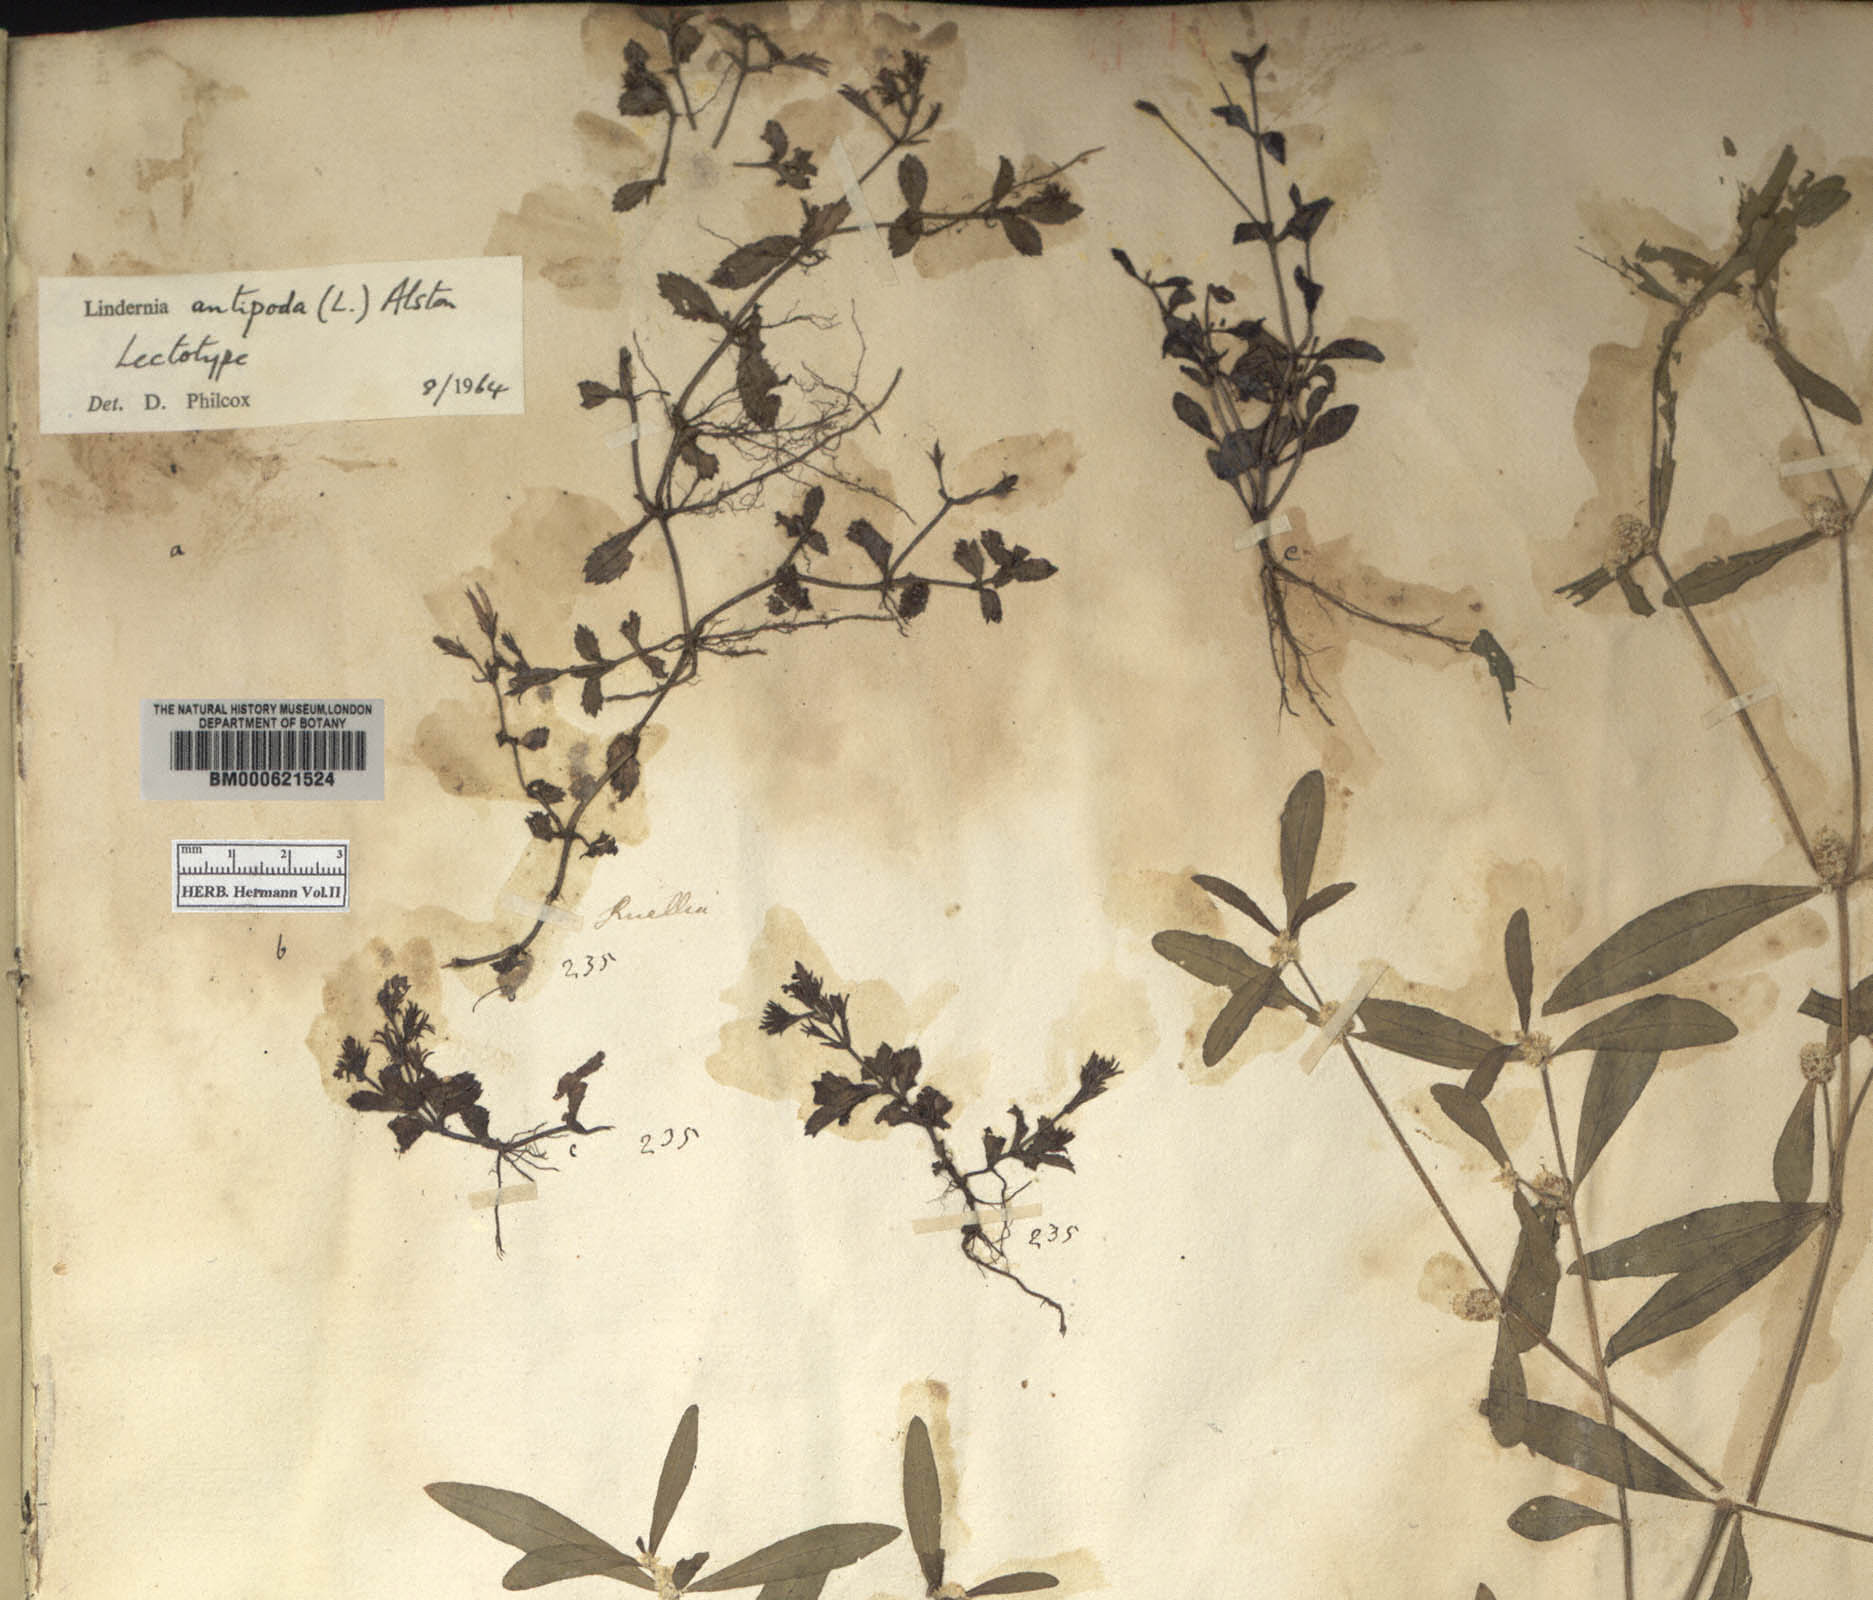 Lindernia antipoda (L.) Alston
Lectotype
Det. D. Philcox 9/1964
a
THE NATURAL HISTORY MUSEUM, LONDON
DEPARTMENT OF BOTANY
BM000621524
mm 1 2 3
HERB. Hermann Vol.II
b
Ruellia
235
c
235
235
e